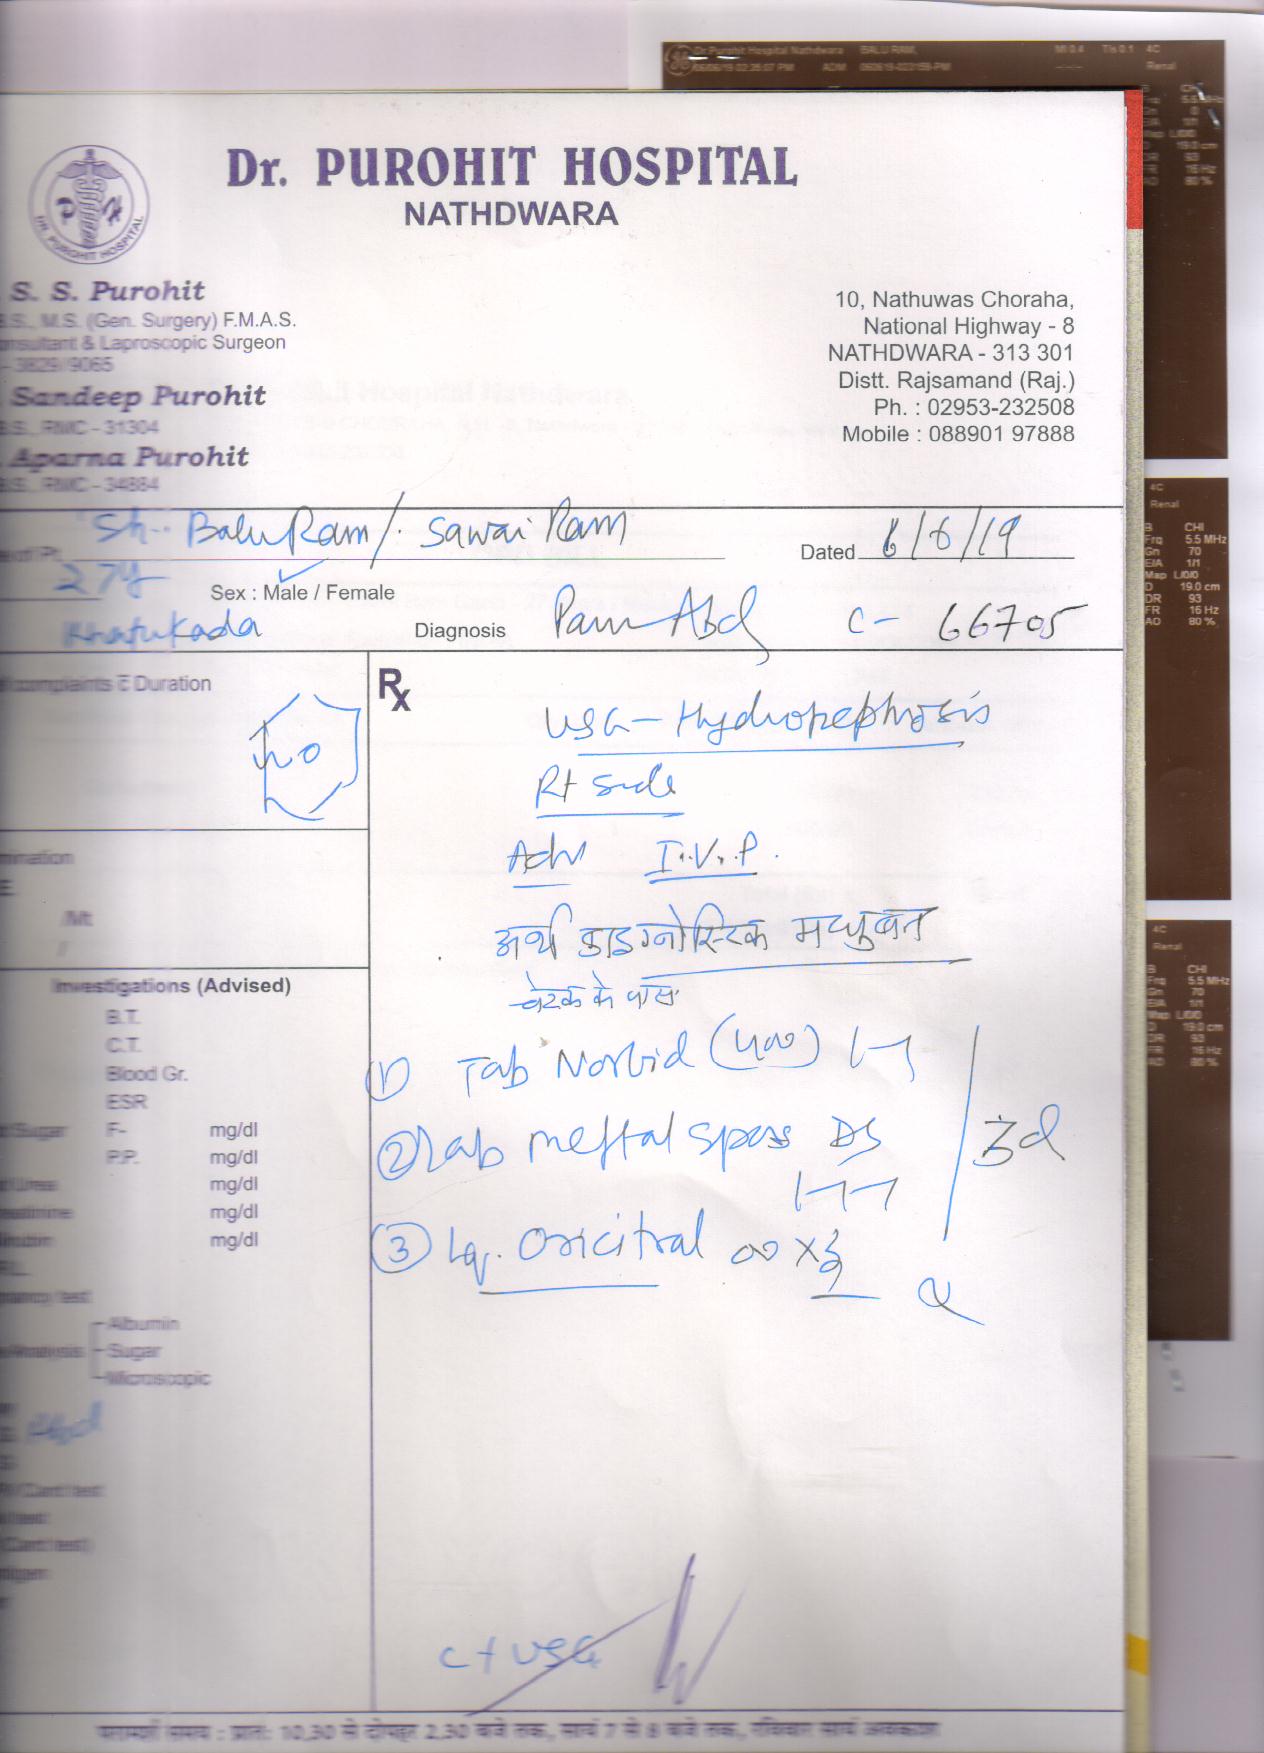 Dr Purohit Hospital Nathdwara BALU RAM, MI 0.4 TIs 0.1 4C
06/06/19 02:35:07 PM ADM 060619-023159-PM Renal
Dr. PUROHIT HOSPITAL
NATHDWARA
DR. PUROHIT HOSPITAL
S. S. Purohit
M.S. (Gen. Surgery) F.M.A.S.
& Laproscopic Surgeon
- 3829/9065
Sandeep Purohit
RMC - 31304
Aparna Purohit
RMC - 34884
10, Nathuwas Choraha,
National Highway - 8
NATHDWARA - 313 301
Distt. Rajsamand (Raj.)
Ph. : 02953-232508
Mobile : 088901 97888
Sh. Balu Ram/. Sawai Ram
Dated 6/6/19
27y Sex : Male / Female
Khatukada Diagnosis Pain Abd C- 66705
complaints c̅ Duration
Rx
USG - Hydronephrosis
Rt side
Adv I.V.P.
अर्थ डाइग्नोस्टिक मधुबन
चेटक के पास
Investigations (Advised)
B.T.
C.T.
Blood Gr.
ESR
Sugar F- mg/dl
P.P. mg/dl
Urea mg/dl
mg/dl
mg/dl
Albumin
Sugar
Microscopic
1) Tab Norbid (400)
2) Tab Meftal Spas DS
3d
3) Lq. Oricitral
C + USG
परामर्श समय : प्रातः 10.30 से दोपहर 2.30 बजे तक, सायं 7 से 8 बजे तक, रविवार सायं अवकाश
4C
Renal
B CHI
Frq 5.5 MHz
Gn 70
E/A 1/1
Map L/0/0
D 19.0 cm
DR 93
FR 16 Hz
AO 80 %
4C
Renal
B CHI
Frq 5.5 MHz
Gn 70
E/A 1/1
Map L/0/0
D 19.0 cm
DR 93
FR 16 Hz
AO 80 %